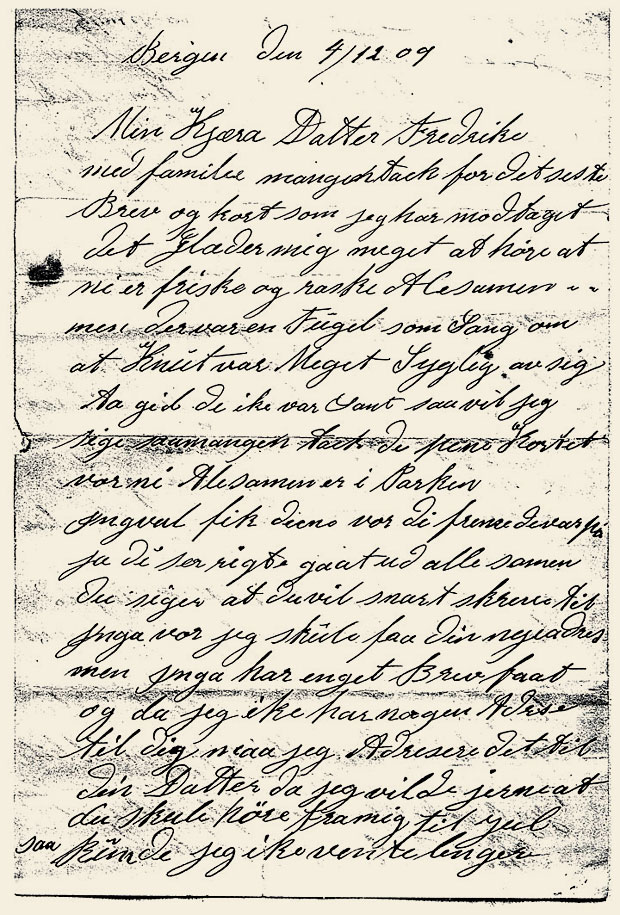 Bergen den 4/12 09
Min Kjæra Datter Fredrike
med familie mangentack for det siste
Brev og kort som jeg har modtaget
det Glæder mig meget at høre at
ni er friske og raske Alesamen
men der var en Fugel som Sang om
at Knut var Meget Syglig av sig
Aa gid de ike var Sant saa vil jeg
sige saamangen tack de pene Kortet
vor ni Alesamen er i Parken
Yngval fik diene vor di fremedevar på
ja di ser rigte gaat ud alle samen
du siger at du vil snart skreve til
Ynga vor jeg skule faa din nyeadres
men Ynga har enget Brev faat
og da jeg ike har nogen Adrse
til dig maa jeg Adresere det til
din Datter da jeg vilde jerne at
du skule höre framig til yul
saa kunde jeg ike vente lenger